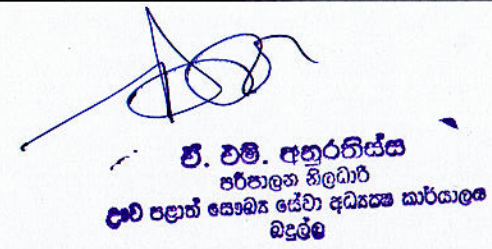 ඒ. එම්. අනුරතිස්ස
පරිපාලන නිලධාරි
ඌව පළාත් සෞඛ්‍ය සේවා අධ්‍යක්ෂ කාර්යාලය
බදුල්ල